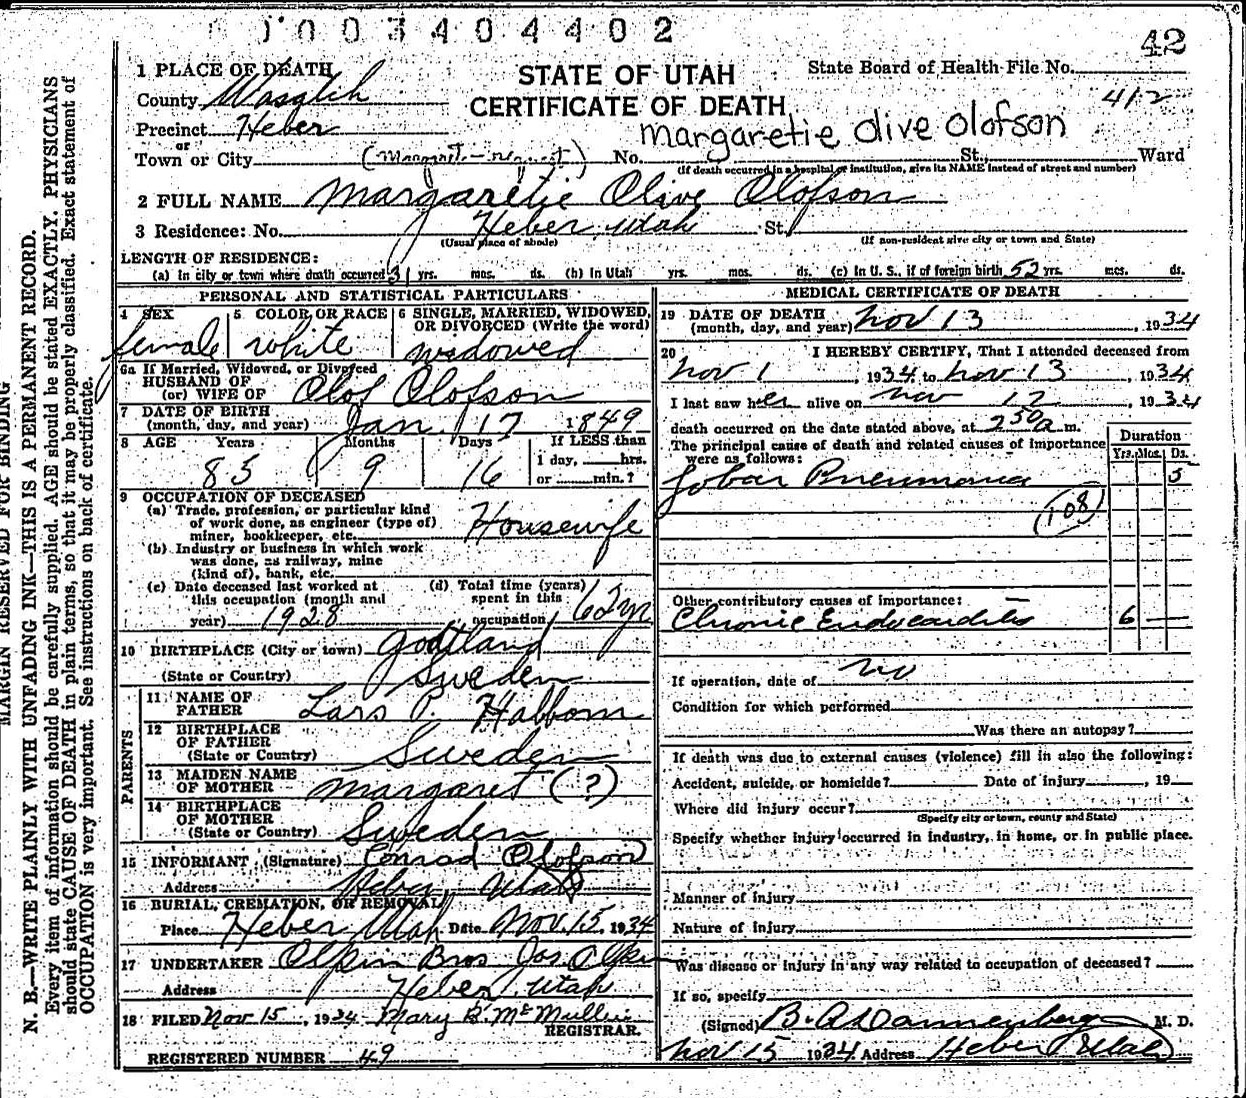 1003404402
42
1 PLACE OF DEATH
STATE OF UTAH
State Board of Health File No.
County Wasatch
CERTIFICATE OF DEATH
412
Precinct Heber
Margaretie Olive Olofson
or
Town or City (Margaret - request) No. St., Ward
(If death occurred in a hospital or institution, give its NAME instead of street and number)
2 FULL NAME Margaretie Olive Olofson
3 Residence: No. Heber, Utah St.
(Usual place of abode) (If non-resident give city or town and State)
LENGTH OF RESIDENCE:
(a) In city or town where death occurred 31 yrs. mos. ds. (b) In Utah yrs. mos. ds. (c) In U. S., if of foreign birth 52 yrs. mos. ds.
PERSONAL AND STATISTICAL PARTICULARS
4 SEX 5 COLOR OR RACE 6 SINGLE, MARRIED, WIDOWED,
OR DIVORCED (Write the word)
female white widowed
6a If Married, Widowed, or Divorced
HUSBAND OF
(or) WIFE OF Olof Olofson
7 DATE OF BIRTH
(month, day, and year) Jan 17 1849
8 AGE Years Months Days If LESS than
1 day, hrs.
85 9 16 or min.?
9 OCCUPATION OF DECEASED
(a) Trade, profession, or particular kind
of work done, as engineer (type of)
miner, bookkeeper, etc. Housewife
(b) Industry or business in which work
was done, as railway, mine
(kind of), bank, etc.
(c) Date deceased last worked at (d) Total time (years)
this occupation (month and spent in this
year) 1928 occupation 62 yr
10 BIRTHPLACE (City or town) Gottland
(State or Country) Sweden
PARENTS
11 NAME OF
FATHER Lars P. Habbom
12 BIRTHPLACE
OF FATHER
(State or Country) Sweden
13 MAIDEN NAME
OF MOTHER Margaret (?)
14 BIRTHPLACE
OF MOTHER
(State or Country) Sweden
15 INFORMANT (Signature) Conrad Olofson
Address Heber, Utah
16 BURIAL, CREMATION, OR REMOVAL
Place Heber Utah Date Nov. 15, 1934
17 UNDERTAKER Olpin Bros Jos. Olpin
Address Heber, Utah
18 FILED Nov 15, 1934 Mary B. McMullin
REGISTRAR.
REGISTERED NUMBER 49
MEDICAL CERTIFICATE OF DEATH
19 DATE OF DEATH
(month, day, and year) Nov 13, 1934
20 I HEREBY CERTIFY, That I attended deceased from
Nov 1, 1934 to Nov 13, 1934
I last saw her alive on Nov 12, 1934
death occurred on the date stated above, at 2 50 a m.
The principal cause of death and related causes of importance
were as follows:
Duration
Yrs. Mos. Ds.
Lobar Pneumonia 5
108
Other contributory causes of importance:
Chronic Endocarditis 6 —
If operation, date of no
Condition for which performed
Was there an autopsy?
If death was due to external causes (violence) fill in also the following:
Accident, suicide, or homicide? Date of injury, 19
Where did injury occur?
(Specify city or town, county and State)
Specify whether injury occurred in industry, in home, or in public place.
Manner of injury
Nature of injury
Was disease or injury in any way related to occupation of deceased?
If so, specify
(Signed) B. A. Dannenberg M. D.
Nov 15 1934 Address Heber Utah
MARGIN RESERVED FOR BINDING
N. B.—WRITE PLAINLY WITH UNFADING INK—THIS IS A PERMANENT RECORD.
Every item of information should be carefully supplied. AGE should be stated EXACTLY. PHYSICIANS
should state CAUSE OF DEATH in plain terms, so that it may be properly classified. Exact statement of
OCCUPATION is very important. See instructions on back of certificate.